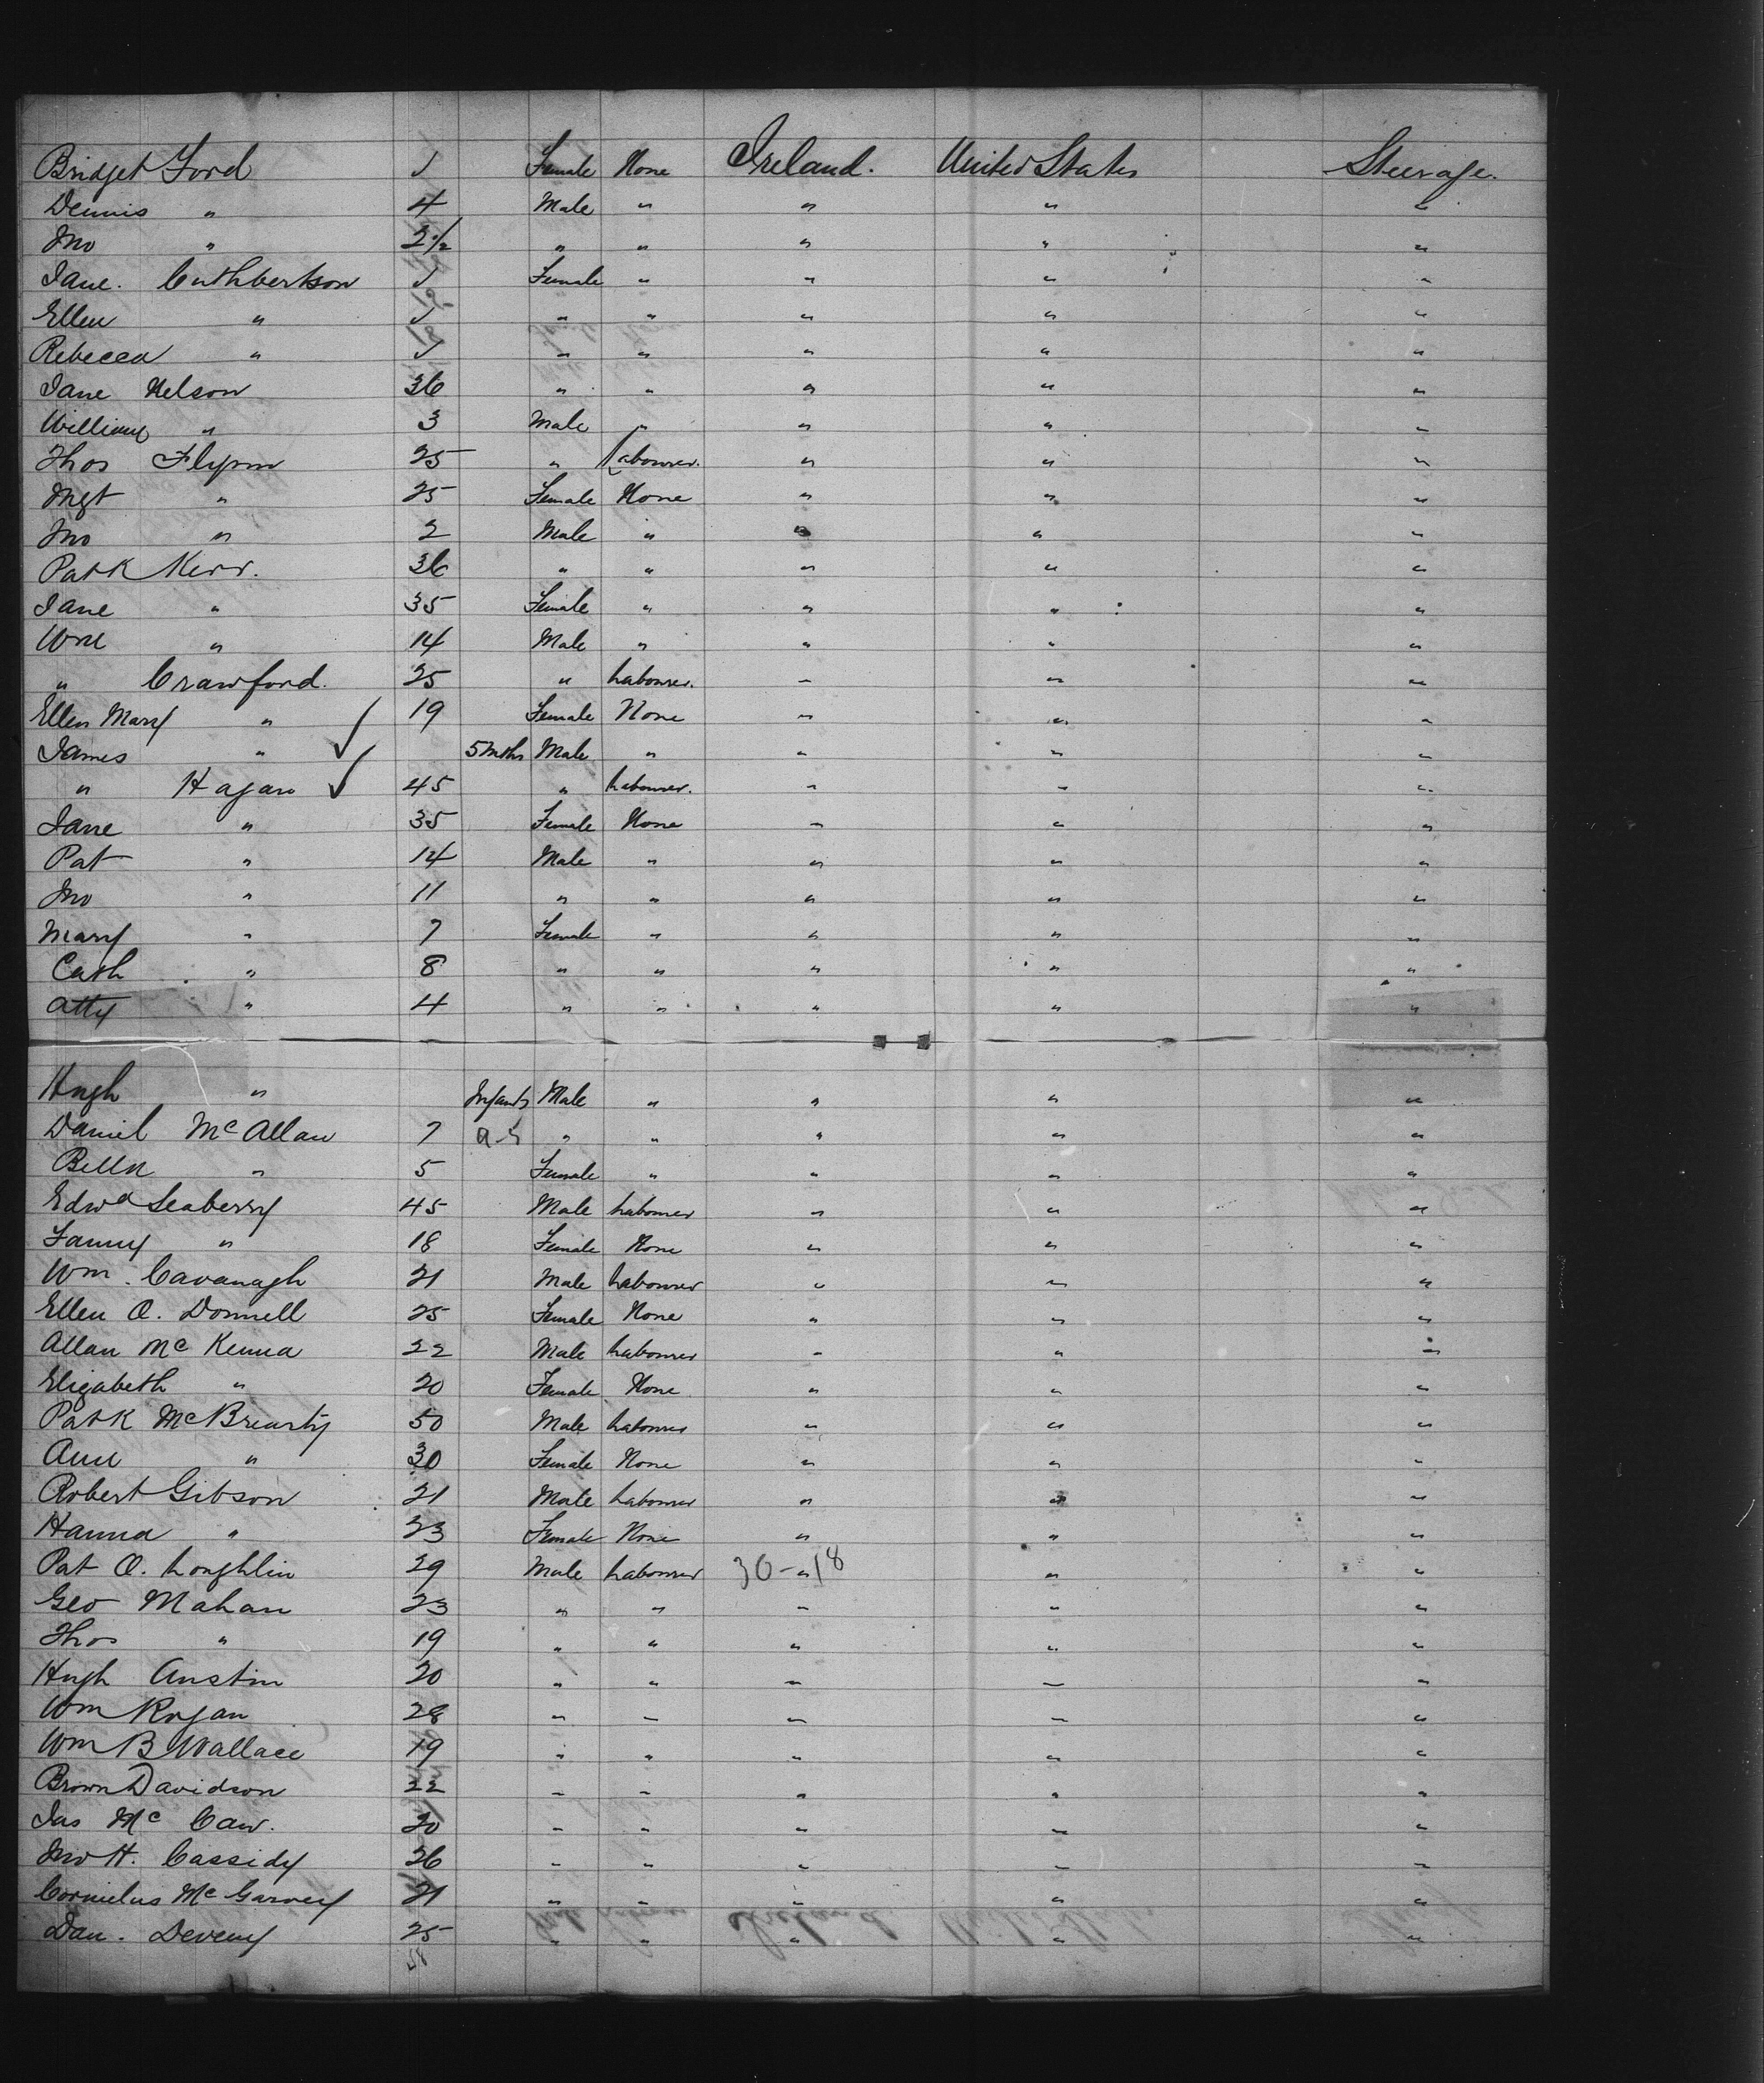 Bridget Ford ✓ Female None Ireland. United States Steerage.
Dennis " 4 Male " " " "
Jno " 2½ " " " " "
Jane. Cuthbertson ✓ Female " " " "
Ellen " ✓ " " " " "
Rebecca " ✓ " " " " "
Jane Nelson 36 " " " " "
William " 3 Male " " " "
Thos Flynn 25 " Labourer. " " "
Mgt " 25 Female None " " "
Jno " 2 Male " " " "
Patk Kerr. 36 " " " " "
Jane " 35 Female " " " "
Wm " 14 Male " " " "
" Crawford. 25 " Labourer. " " "
Ellen Mary " 19 Female None " " "
James " ✓ 5 Mths Male " " " "
" Hagan ✓ 45 " Labourer. " " "
Jane " 35 Female None " " "
Pat " 14 Male " " " "
Jno " 11 " " " " "
Mary " 7 Female " " " "
Cath " 8 " " " " "
Atty " 4 " " " " "
Hugh " Infants Male " " " "
Daniel Mc Allan 7 " " " " "
Bella " 5 Female " " " "
Edwd Seaberry 45 Male Labourer " " "
Fanny " 18 Female None " " "
Wm. Cavanagh 21 Male Labourer " " "
Ellen O. Donnell 25 Female None " " "
Allan Mc Kenna 22 Male Labourer " " "
Elizabeth " 20 Female None " " "
Patk McBrearty 50 Male Labourer " " "
Ann " 30 Female None " " "
Robert Gibson 21 Male Labourer " " "
Hanna " 23 Female None " " "
Pat O. Loughlin 29 Male Labourer 30-18 " " "
Geo Mahan 23 " " " " "
Thos " 19 " " " " "
Hugh Austin 20 " " " " "
Wm Rogan 28 " " " " "
Wm B Wallace 19 " " " " "
Brown Davidson 22 " " " " "
Jas Mc Caw. 20 " " " " "
Jno H. Cassidy 26 " " " " "
Cornelius Mc Garvey 21 " " " " "
Dan. Deveny 25 " " " " "